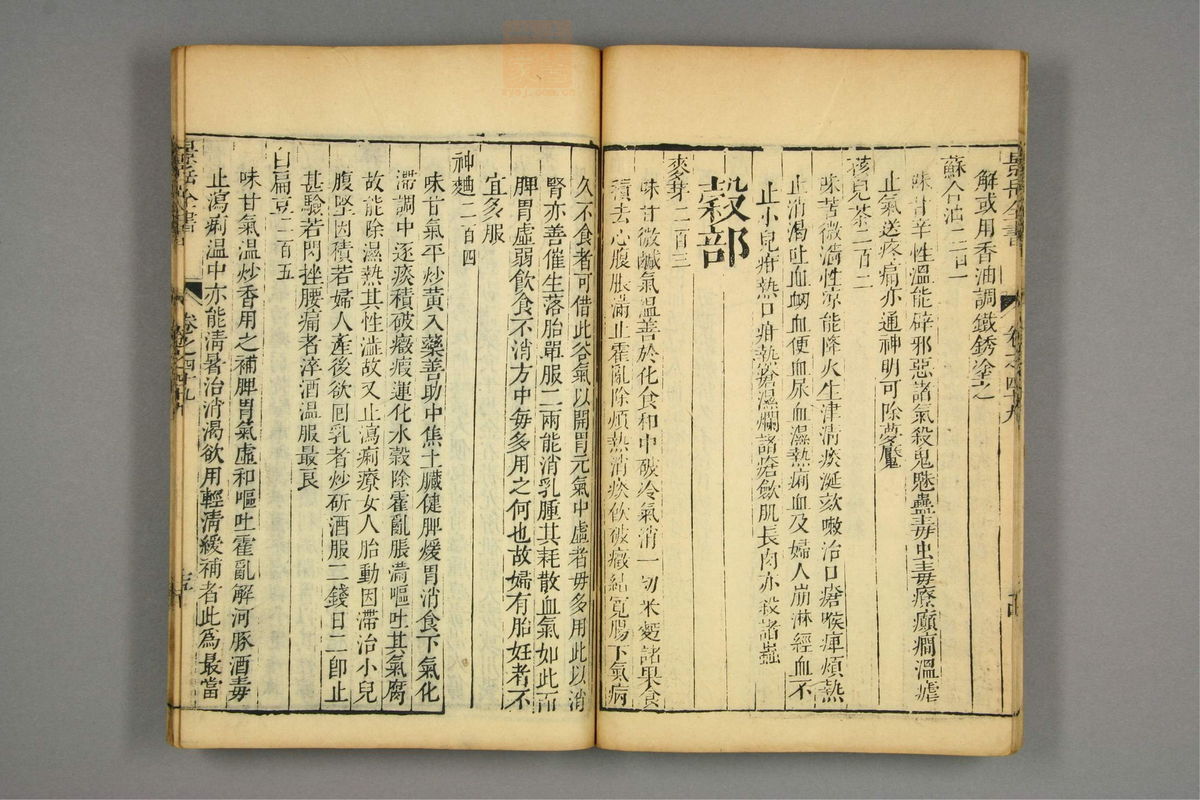 解或用香油調鐵銹塗之
蘇合油二百一
味甘辛性溫能辟邪惡諸氣殺鬼魅蠱毒虫毒療癲癎溫瘧
止氣逆疼痛亦通神明可除夢魘
孩兒茶二百二
味苦微濇性凉能降火生津清痰涎欬嗽治口瘡喉痺煩熱
止消渴吐血衂血便血尿血濕熱痢血及婦人崩淋經血不
止小兒疳熱口疳熱瘡濕爛諸瘡斂肌長肉亦殺諸蟲
穀部
麥芽二百三
味甘微鹹氣溫善於化食和中破冷氣消一切米麫諸果食
積去心腹脹滿止霍亂除煩熱消痰飲破癥結寬腸下氣病
久不食者可借此谷氣以開胃元氣中虛者毋多用此以消
腎亦善催生落胎單服二兩能消乳腫其耗散血氣如此而
脾胃虛弱飲食不消方中每多用之何也故婦有胎妊者不
宜多服
神麯二百四
味甘氣平炒黃入藥善助中焦土臟健脾煖胃消食下氣化
滯調中逐痰積破癥瘕運化水穀除霍亂脹滿嘔吐其氣腐
故能除濕熱其性澁故又止瀉痢療女人胎動因滯治小兒
腹堅因積若婦人產後欲囘乳者炒研酒服二錢日二卽止
甚驗若閃挫腰痛者淬酒温服最良
白扁豆二百五
味甘氣温炒香用之補脾胃氣虛和嘔吐霍亂解河豚酒毒
止瀉痢温中亦能清暑治消渴欲用輕清緩補者此為最當
景岳全書
卷之四十九